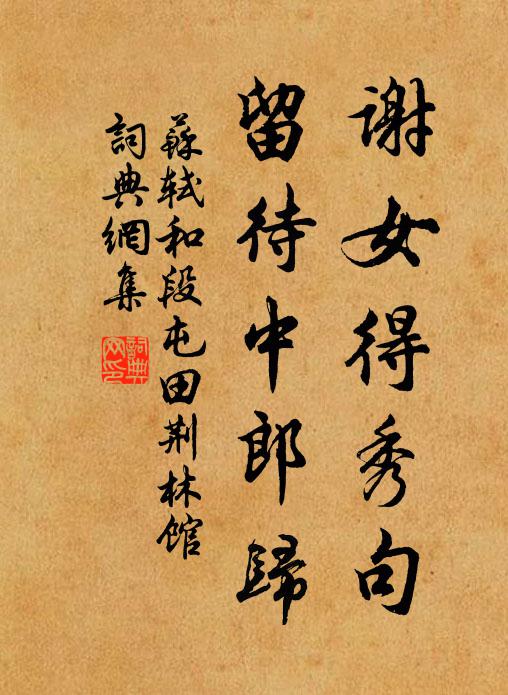 謝女得秀句
留待中郎歸
蘇軾和段屯田荆林館
詞典網集
詞典網印